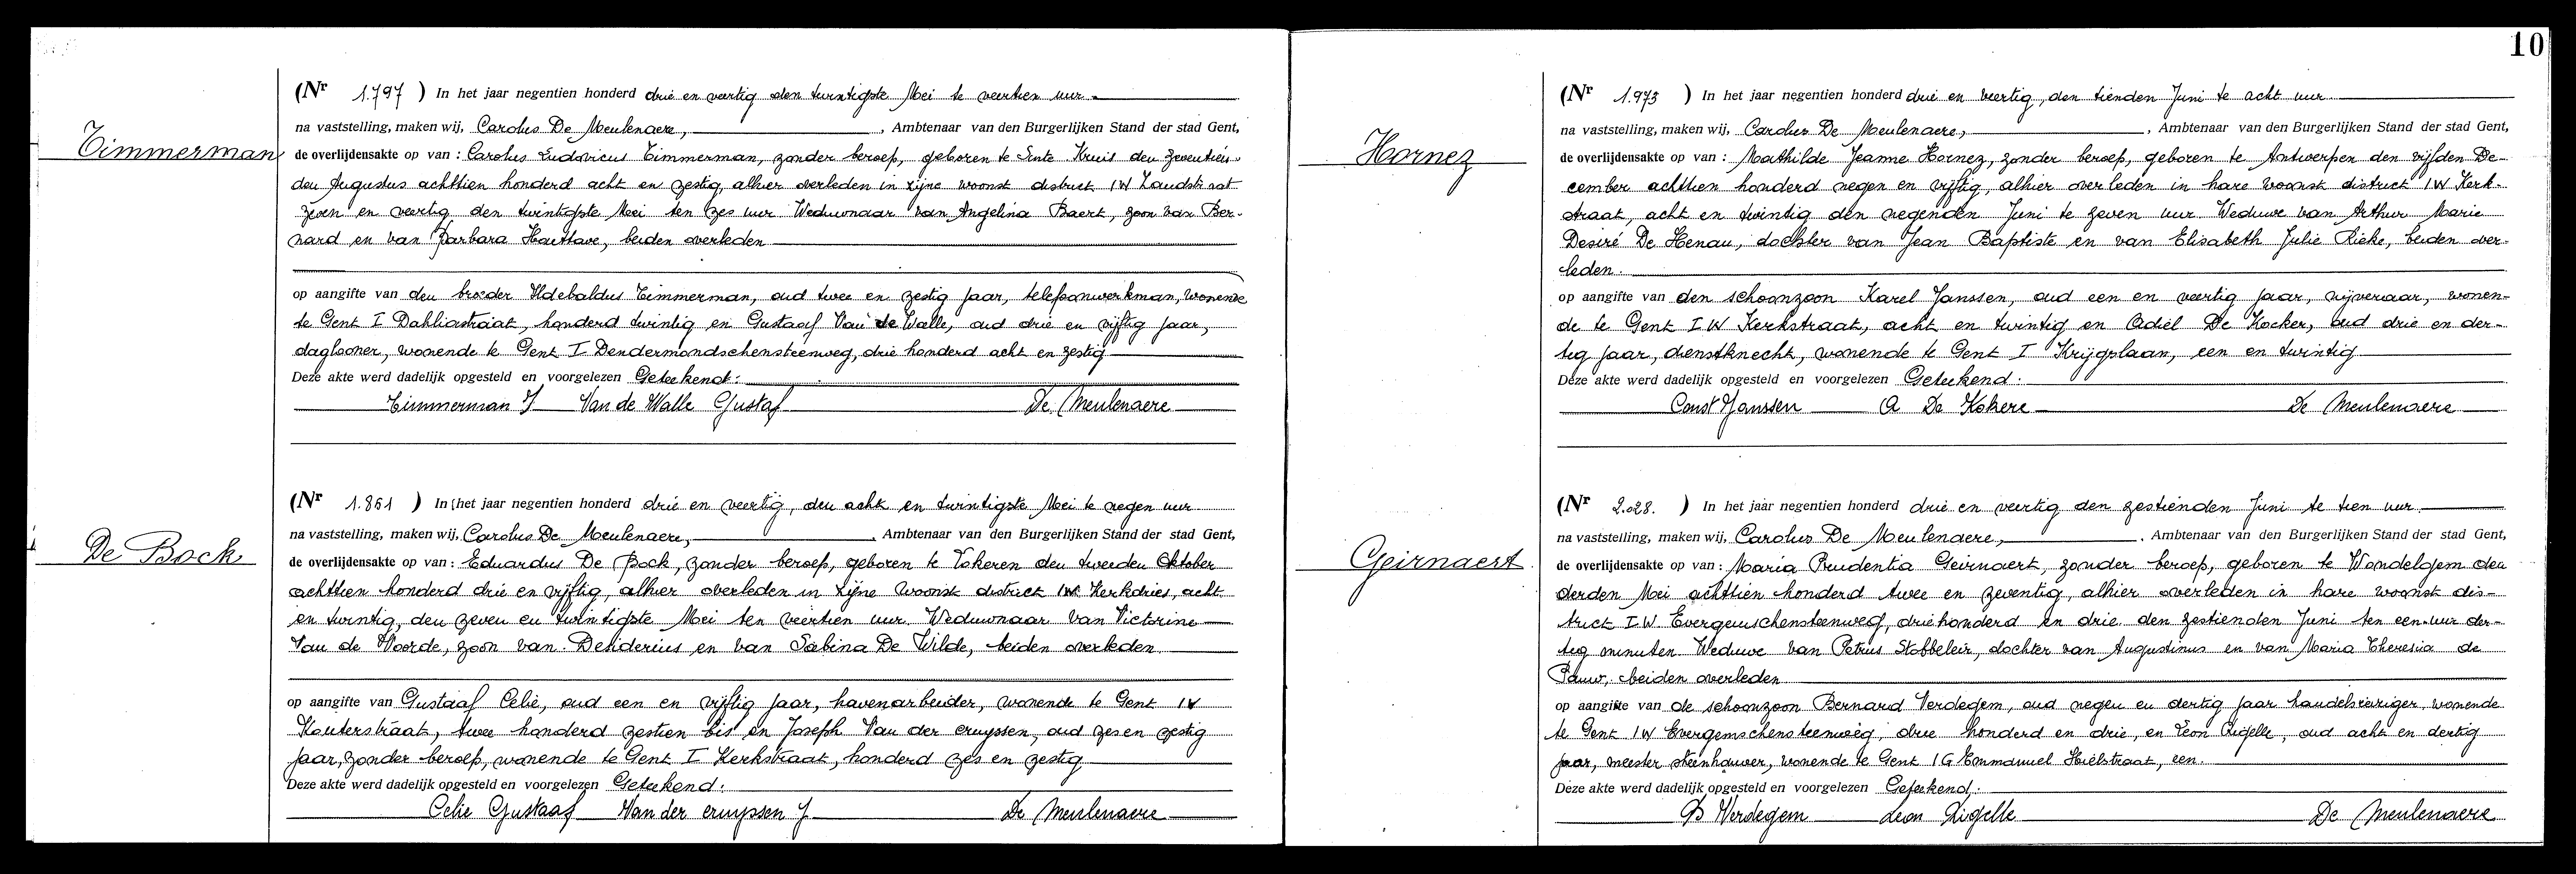 Timmerman
(Nr 1.797 ) In het jaar negentien honderd drie en veertig den twintigste Mei te veertien uur
na vaststelling, maken wij, Carolus De Meulenaere, , Ambtenaar van den Burgerlijken Stand der stad Gent,
de overlijdensakte op van : Carolus Ludovicus Timmerman, zonder beroep, geboren te Sinte Kruis den zeventien-
den Augustus achttien honderd acht en zestig, alhier overleden in zijne woonst district IW Zandstraat
zeven en veertig den twintigste Mei ten zes uur Weduwnaar van Angelina Baert, zoon van Ber-
nard en van Barbara Haettave, beiden overleden
op aangifte van den broeder Ildebaldus Timmerman, oud twee en zestig jaar, telefoonwerkman, wonende
te Gent I Dahliastraat, honderd twintig en Gustaaf Van de Walle, oud drie en vijftig jaar,
daglooner, wonende te Gent I Dendermondschensteenweg, drie honderd acht en zestig
Deze akte werd dadelijk opgesteld en voorgelezen Geteekend:
Timmerman J Van de Walle Gustaf De Meulenaere
De Bock
(Nr 1.861 ) In het jaar negentien honderd drie en veertig, den acht en twintigste Mei te negen uur
na vaststelling, maken wij, Carolus De Meulenaere, , Ambtenaar van den Burgerlijken Stand der stad Gent,
de overlijdensakte op van : Eduardus De Bock, zonder beroep, geboren te Lokeren den tweeden Oktober
achttien honderd drie en vijftig, alhier overleden in zijne woonst district IW Kerkdries, acht
en twintig, den zeven en twintigste Mei ten veertien uur. Weduwnaar van Victorine
Van de Voorde, zoon van Desiderius en van Sabina De Wilde, beiden overleden
op aangifte van Gustaaf Celie, oud een en vijftig jaar, havenarbeider, wonende te Gent IW
Kouterstraat, twee honderd zestien bis en Joseph Van der cruyssen, oud zes en zestig
jaar, zonder beroep, wonende te Gent I Kerkstraat, honderd zes en zestig
Deze akte werd dadelijk opgesteld en voorgelezen Geteekend:
Celie Gustaaf Van der cruyssen J De Meulenaere
10
Hornez
(Nr 1.973 ) In het jaar negentien honderd drie en veertig, den tienden Juni te acht uur
na vaststelling, maken wij, Carolus De Meulenaere, , Ambtenaar van den Burgerlijken Stand der stad Gent,
de overlijdensakte op van : Mathilde Jeanne Hornez, zonder beroep, geboren te Antwerpen den vijfden De-
cember achttien honderd negen en vijftig, alhier overleden in hare woonst district IW Kerk-
straat, acht en twintig den negenden Juni te zeven uur Weduwe van Arthur Marie
Desiré De Henau, dochter van Jean Baptiste en van Elisabeth Julie Rieke, beiden over-
leden.
op aangifte van den schoonzoon Karel Janssen, oud een en veertig jaar, nijveraar, wonen-
de te Gent IW Kerkstraat, acht en twintig en Odiel De Kocker, oud drie en der-
tig jaar, dienstknecht, wonende te Gent I Krijgslaan, een en twintig
Deze akte werd dadelijk opgesteld en voorgelezen Geteekend:
Const Janssen O De Kokere De Meulenaere
Geirnaert
(Nr 2.028. ) In het jaar negentien honderd drie en veertig den zestienden Juni te tien uur
na vaststelling, maken wij, Carolus De Meulenaere, , Ambtenaar van den Burgerlijken Stand der stad Gent,
de overlijdensakte op van : Maria Prudentia Geirnaert, zonder beroep, geboren te Wondelgem den
derden Mei achttien honderd twee en zeventig, alhier overleden in hare woonst dis-
trict IW Evergemschensteenweg, driehonderd en drie den zestienden Juni ten een uur der-
tig minuten Weduwe van Petrus Stobbeleir, dochter van Augustinus en van Maria Theresia de
Pauw, beiden overleden
op aangifte van de schoonzoon Bernard Verdegem, oud negen en dertig jaar handelsreiziger, wonende
te Gent IW Evergemschensteenweg, drie honderd en drie, en Leon Rigelle, oud acht en dertig
jaar, meester steenhouwer, wonende te Gent IG Emmanuel Hielstraat, een.
Deze akte werd dadelijk opgesteld en voorgelezen Geteekend:
B Verdegem Leon Rigelle De Meulenaere